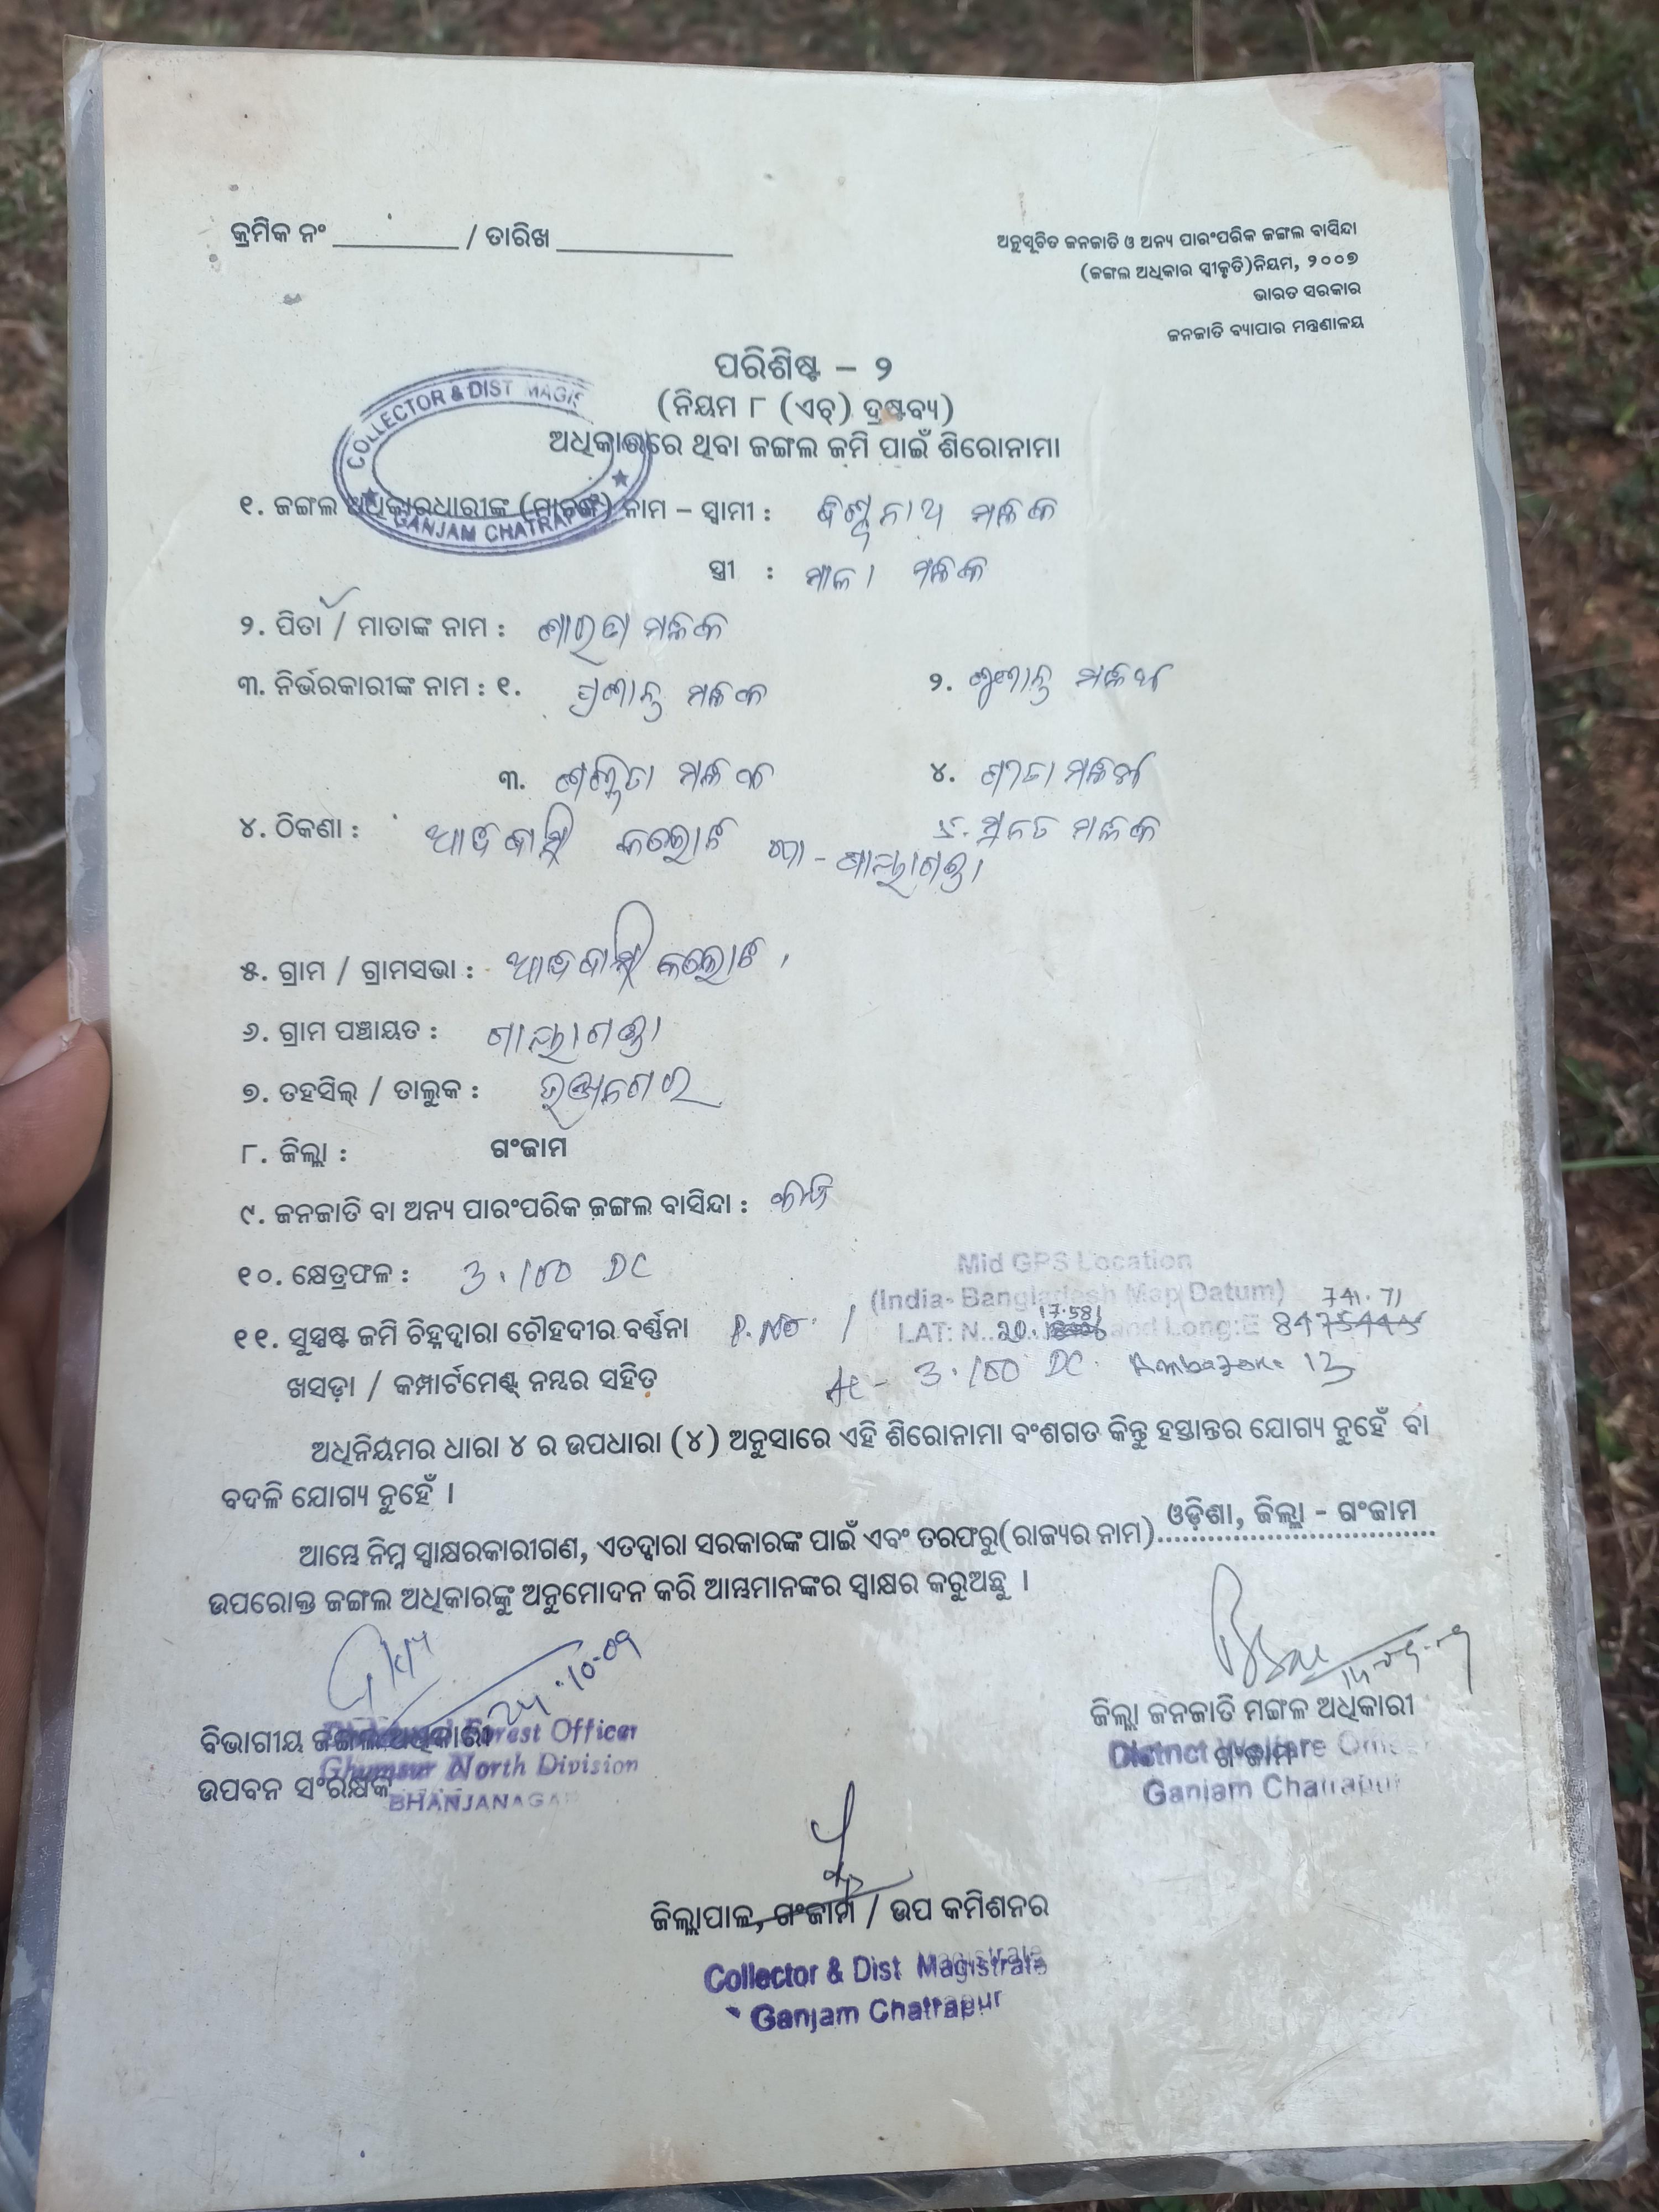 କ୍ରମିକ ନଂ ________ / ତାରିଖ ___________
ଅନୁସୂଚିତ ଜନଜାତି ଓ ଅନ୍ୟ ପାରଂପରିକ ଜଙ୍ଗଲ ବାସିନ୍ଦା
(ଜଙ୍ଗଲ ଅଧିକାର ସ୍ୱୀକୃତି)ନିୟମ, ୨୦୦୭
ଭାରତ ସରକାର
ଜନଜାତି ବ୍ୟାପାର ମନ୍ତ୍ରଣାଳୟ
ପରିଶିଷ୍ଟ – ୨
(ନିୟମ ୮ (ଏଚ୍) ଦ୍ରଷ୍ଟବ୍ୟ)
ଅଧିକାରରେ ଥିବା ଜଙ୍ଗଲ ଜମି ପାଇଁ ଶିରୋନାମା
COLLECTOR & DIST MAGIS
GANJAM CHATRAPUR
୧. ଜଙ୍ଗଲ ଅଧିକାରଧାରୀଙ୍କ (ମାନଙ୍କ) ନାମ – ସ୍ୱାମୀ : ବିଶ୍ୱନାଥ ମଳିକ
ସ୍ତ୍ରୀ : ମାଳା ମଳିକ
୨. ପିତା / ମାତାଙ୍କ ନାମ : ମଳିକ
୩. ନିର୍ଭରକାରୀଙ୍କ ନାମ : ୧. ପ୍ରଶାନ୍ତ ମଳିକ ୨. ସୁଶାନ୍ତ ମଳିକ
୩. ମଳିକ ୪. ଗୀତା ମଳିକ
୫. ମଳିକ
୪. ଠିକଣା :
୫. ଗ୍ରାମ / ଗ୍ରାମସଭା :
୬. ଗ୍ରାମ ପଞ୍ଚାୟତ :
୭. ତହସିଲ୍ / ତାଲୁକ : ଭଞ୍ଜନଗର
୮. ଜିଲ୍ଲା : ଗଂଜାମ
୯. ଜନଜାତି ବା ଅନ୍ୟ ପାରଂପରିକ ଜଙ୍ଗଲ ବାସିନ୍ଦା :
୧୦. କ୍ଷେତ୍ରଫଳ : 3.100 DC
Mid GPS Location
(India-Bangladesh Map Datum)
୧୧. ସୁସ୍ପଷ୍ଟ ଜମି ଚିହ୍ନଦ୍ୱାରା ଚୌହଦୀର ବର୍ଣ୍ଣନା P. No. 1 LAT: N.. 20. 17.581 and Long:E 84 741.71
ଖସଡ଼ା / କମ୍ପାର୍ଟମେଣ୍ଟ୍ ନମ୍ବର ସହିତ Ac - 3.100 DC. 13
ଅଧିନିୟମର ଧାରା ୪ ର ଉପଧାରା (୪) ଅନୁସାରେ ଏହି ଶିରୋନାମା ବଂଶଗତ କିନ୍ତୁ ହସ୍ତାନ୍ତର ଯୋଗ୍ୟ ନୁହେଁ ବା
ବଦଳି ଯୋଗ୍ୟ ନୁହେଁ ।
ଆମ୍ଭେ ନିମ୍ନ ସ୍ୱାକ୍ଷରକାରୀଗଣ, ଏତଦ୍ୱାରା ସରକାରଙ୍କ ପାଇଁ ଏବଂ ତରଫରୁ(ରାଜ୍ୟର ନାମ) ଓଡ଼ିଶା, ଜିଲ୍ଲା - ଗଂଜାମ
ଉପରୋକ୍ତ ଜଙ୍ଗଲ ଅଧିକାରଙ୍କୁ ଅନୁମୋଦନ କରି ଆମ୍ଭମାନଙ୍କର ସ୍ୱାକ୍ଷର କରୁଅଛୁ ।
ବିଭାଗୀୟ ଜଙ୍ଗଲ ଅଧିକାରୀ
ଉପବନ ସଂରକ୍ଷକ
Forest Officer
Ghumsur North Division
BHANJANAGAR
ଜିଲ୍ଲା ଜନଜାତି ମଙ୍ଗଳ ଅଧିକାରୀ
ଗଂଜାମ
District Welfare Officer
Ganjam Chatrapur
ଜିଲ୍ଲାପାଳ, ଗଂଜାମ / ଉପ କମିଶନର
Collector & Dist Magistrate
Ganjam Chatrapur